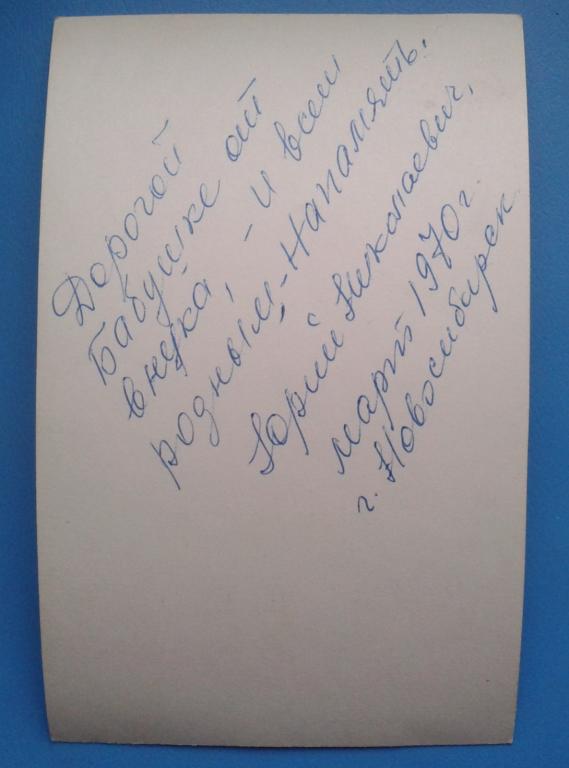 Дорогой
Бабушке от
внука, - и всем
родным,- Напамять.
Юрий Николаевич,
март 1970г.
г. Новосибирск